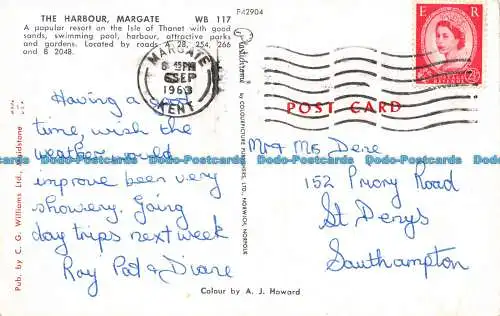 THE HARBOUR, MARGATE WB 117
A popular resort on the Isle of Thanet with good
sands, swimming pool, harbour, attractive parks
and gardens. Located by roads A 28, 254, 266
and B 2048.
F42904
MARGATE
6 SEP
1963
KENT
E R
POST CARD
Having a good
time, wish the
weather would
improve been very
showery. Going
day trips next week
Ray Pat & Diane
Mr & Mrs Dene
152 Priory Road
St Denys
Southampton
Pub. by C. G. Williams Ltd., Maidstone
BY COLOURPICTURE PUBLISHERS, LTD., NORWICH, NORFOLK
Colour by A. J. Howard
Dodo-Postcards Dodo-Postcards Dodo-Postcards Dodo-Postcards